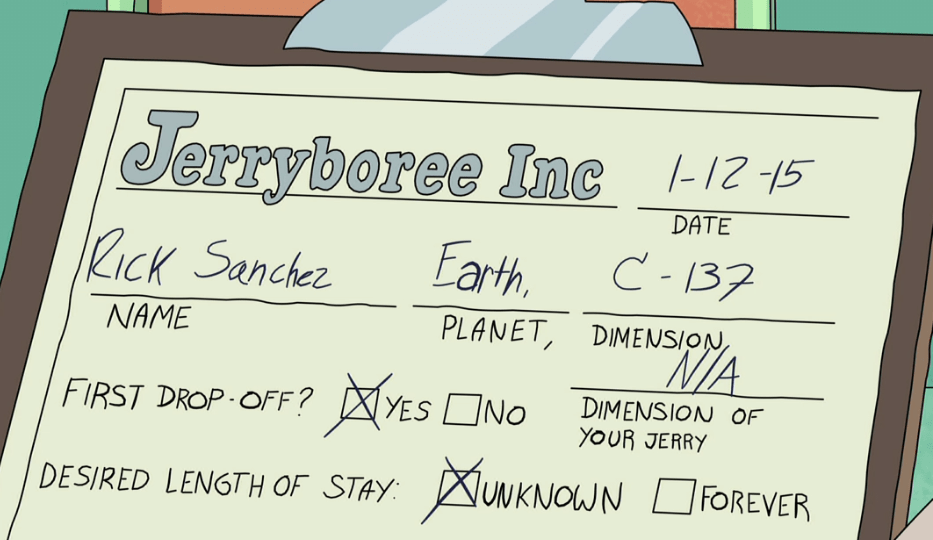 Jerryboree Inc 1-12-15
DATE
Rick Sanchez Earth, C-137
NAME PLANET, DIMENSION
N/A
FIRST DROP-OFF? YES NO DIMENSION OF
YOUR JERRY
DESIRED LENGTH OF STAY: UNKNOWN FOREVER